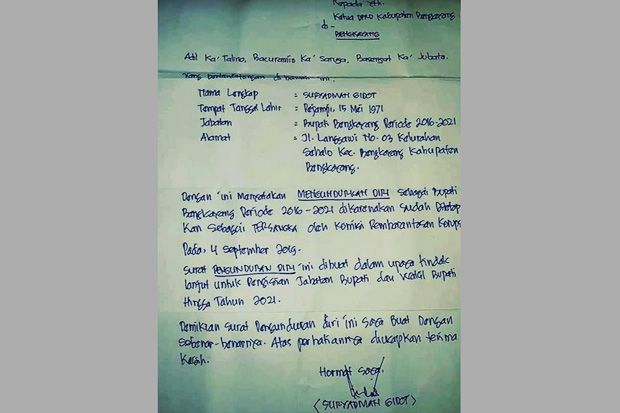 Kepada Yth.
Ketua DPRD Kabupaten Bengkayang
di-
BENGKAYANG
Adil Ka' Talino, Bacuramin Ka' Saruga, Basengat Ka' Jubata.
Yang bertandatangan dibawah ini.
Nama Lengkap = SURYADMAN GIDOT
Tempat Tanggal Lahir = Rejangi, 15 Mei 1971
Jabatan = Bupati Bengkayang Periode 2016-2021
Alamat = Jl. Langsawi No. 03 Kelurahan
Sebalo Kec. Bengkayang Kabupaten
Bengkayang.
Dengan ini Menyatakan MENGUNDURKAN DIRI sebagai Bupati
Bengkayang Periode 2016-2021 dikarenakan sudah Ditetap
kan sebagai TERSANGKA oleh Komisi Pemberantasan Korupsi
Pada, 4 September 2019.
Surat PENGUNDURAN DIRI ini dibuat dalam upaya tindak
lanjut untuk Pengisian Jabatan Bupati dan Wakil Bupati
Hingga Tahun 2021.
Demikian Surat Pengunduran Diri ini Saya Buat Dengan
Sebenar-benarnya. Atas perhatiannya diucapkan terima
Kasih.
Hormat Saya,
(SURYADMAN GIDOT)